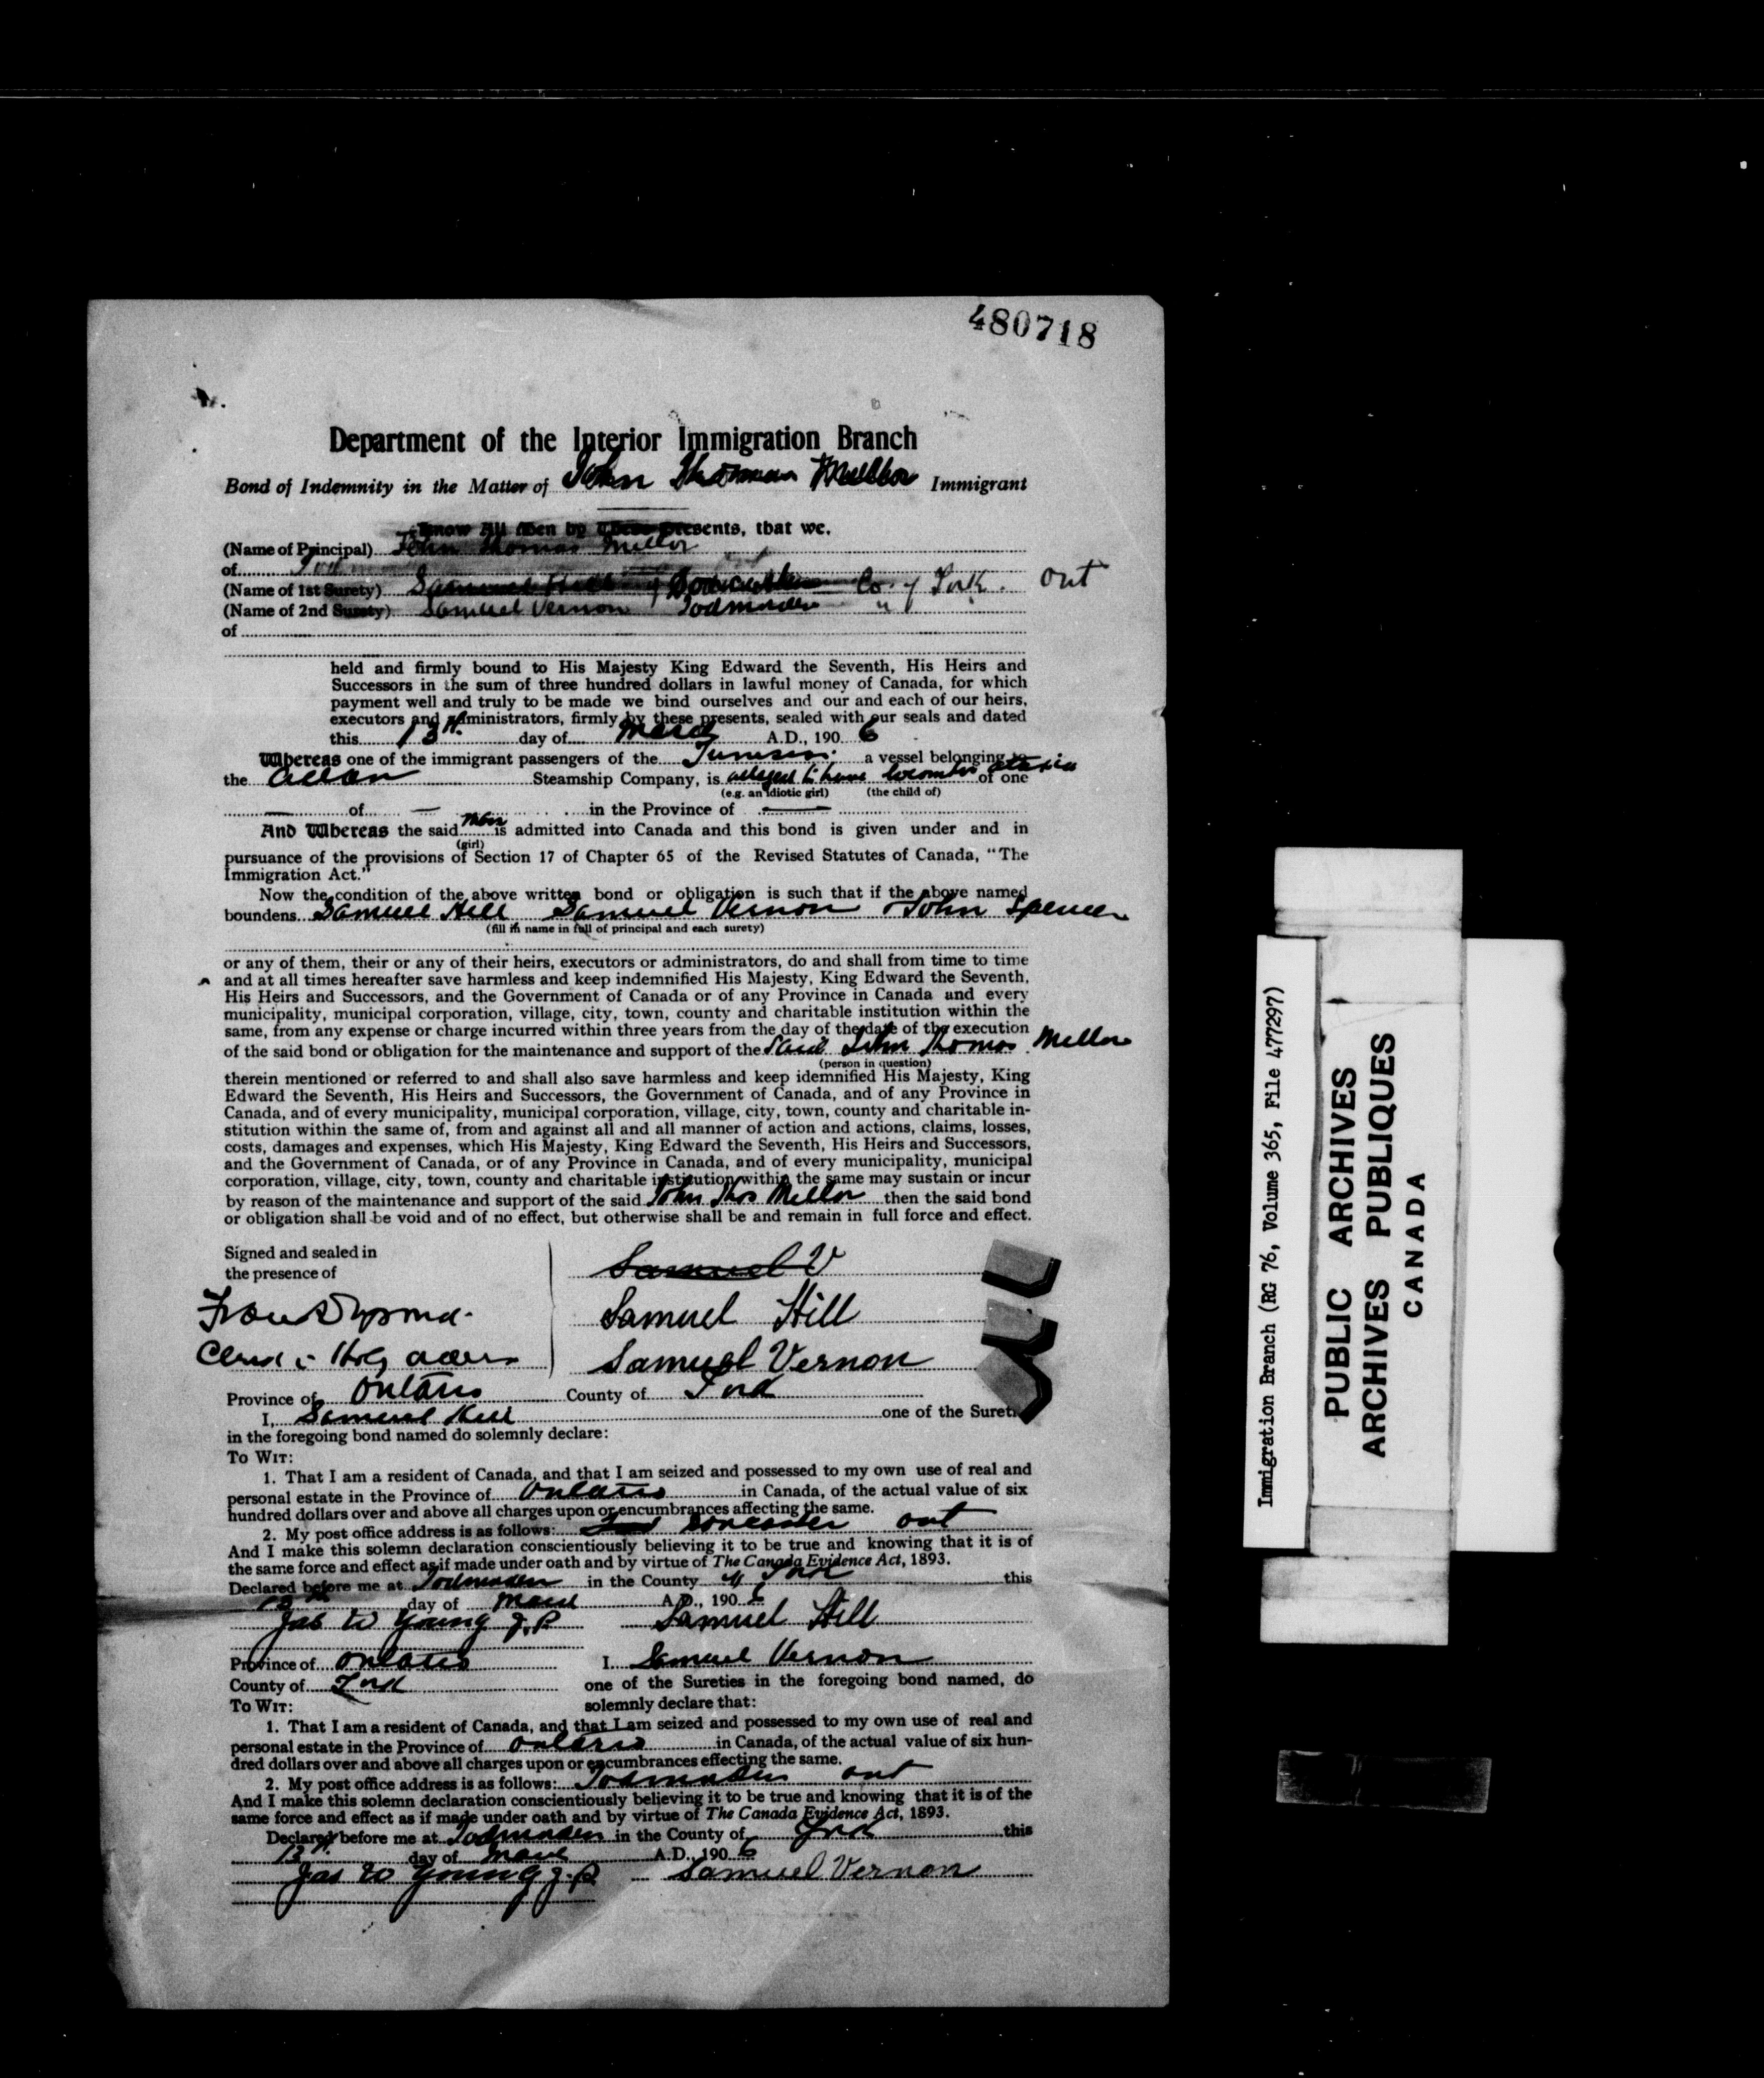 480718
Department of the Interior Immigration Branch
Bond of Indemnity in the Matter of John Thomas Mellor Immigrant
Know All Men by These Presents, that we.
(Name of Principal) John Thomas Mellor
of
(Name of 1st Surety) Samuel Hill of Doncaster Co. of York. Ont
(Name of 2nd Surety) Samuel Vernon Todmorden " "
of
held and firmly bound to His Majesty King Edward the Seventh, His Heirs and
Successors in the sum of three hundred dollars in lawful money of Canada, for which
payment well and truly to be made we bind ourselves and our and each of our heirs,
executors and administrators, firmly by these presents, sealed with our seals and dated
this 13th day of March A.D., 190 6
Whereas one of the immigrant passengers of the Tunisian a vessel belonging to
the Allan Steamship Company, is alleged to have locomotor ataxia of one
(e.g. an idiotic girl) (the child of)
of in the Province of
And Whereas the said man is admitted into Canada and this bond is given under and in
(girl)
pursuance of the provisions of Section 17 of Chapter 65 of the Revised Statutes of Canada, "The
Immigration Act."
Now the condition of the above written bond or obligation is such that if the above named
boundens Samuel Hill Samuel Vernon John Spencer
(fill in name in full of principal and each surety)
or any of them, their or any of their heirs, executors or administrators, do and shall from time to time
and at all times hereafter save harmless and keep indemnified His Majesty, King Edward the Seventh,
His Heirs and Successors, and the Government of Canada or of any Province in Canada and every
municipality, municipal corporation, village, city, town, county and charitable institution within the
same, from any expense or charge incurred within three years from the day of the date of the execution
of the said bond or obligation for the maintenance and support of the said John Thomas Mellor
(person in question)
therein mentioned or referred to and shall also save harmless and keep idemnified His Majesty, King
Edward the Seventh, His Heirs and Successors, the Government of Canada, and of any Province in
Canada, and of every municipality, municipal corporation, village, city, town, county and charitable in-
stitution within the same of, from and against all and all manner of action and actions, claims, losses,
costs, damages and expenses, which His Majesty, King Edward the Seventh, His Heirs and Successors,
and the Government of Canada, or of any Province in Canada, and of every municipality, municipal
corporation, village, city, town, county and charitable institution within the same may sustain or incur
by reason of the maintenance and support of the said John Thos Mellor then the said bond
or obligation shall be void and of no effect, but otherwise shall be and remain in full force and effect.
Signed and sealed in
the presence of
Samuel V
Samuel Hill
Samuel Vernon
Province of Ontario County of York
I, Samuel Hill one of the Sureties
in the foregoing bond named do solemnly declare:
To Wit:
1. That I am a resident of Canada, and that I am seized and possessed to my own use of real and
personal estate in the Province of Ontario in Canada, of the actual value of six
hundred dollars over and above all charges upon or encumbrances affecting the same.
2. My post office address is as follows: Doncaster Ont
And I make this solemn declaration conscientiously believing it to be true and knowing that it is of
the same force and effect as if made under oath and by virtue of The Canada Evidence Act, 1893.
Declared before me at Todmorden in the County of York this
day of March A.D., 190 6
Jas W Young J.P. Samuel Hill
Province of Ontario I Samuel Vernon
County of York one of the Sureties in the foregoing bond named, do
To Wit: solemnly declare that:
1. That I am a resident of Canada, and that I am seized and possessed to my own use of real and
personal estate in the Province of Ontario in Canada, of the actual value of six hun-
dred dollars over and above all charges upon or encumbrances effecting the same.
2. My post office address is as follows: Todmorden Ont
And I make this solemn declaration conscientiously believing it to be true and knowing that it is of the
same force and effect as if made under oath and by virtue of The Canada Evidence Act, 1893.
Declared before me at Todmorden in the County of York this
day of March A.D., 190 6
Jas W Young J.P. Samuel Vernon
Immigration Branch (RG 76, Volume 365, File 477297)
PUBLIC ARCHIVES
ARCHIVES PUBLIQUES
CANADA